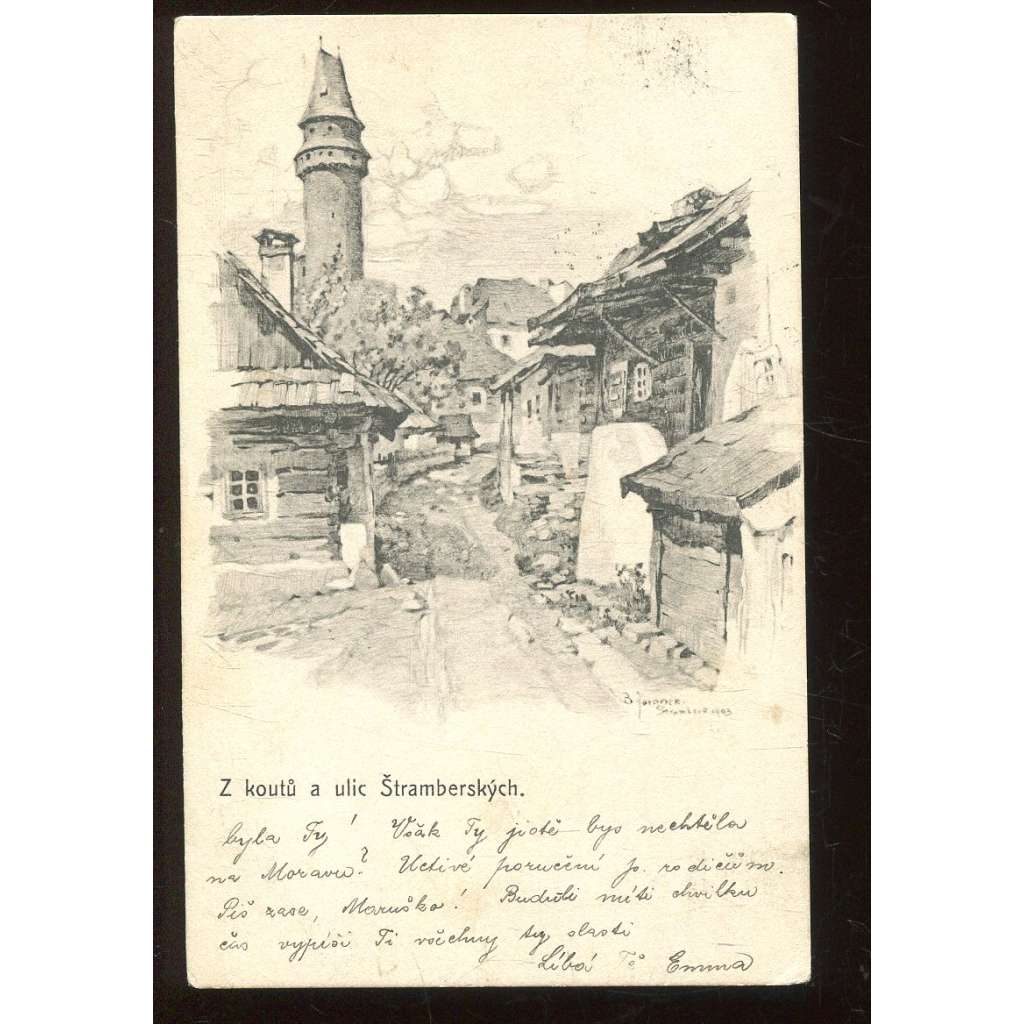 B. Jaroněk.
Štramberk 1903
Z koutů a ulic Štramberských.
byla Ty! Však Ty jistě bys nechtěla
na Moravu? Uctivé poručení p. rodičům.
Piš zase, Maruško! Buduli míti chvilku
čas vypíši Ti všechny ty slasti
Líbá Tě Emma